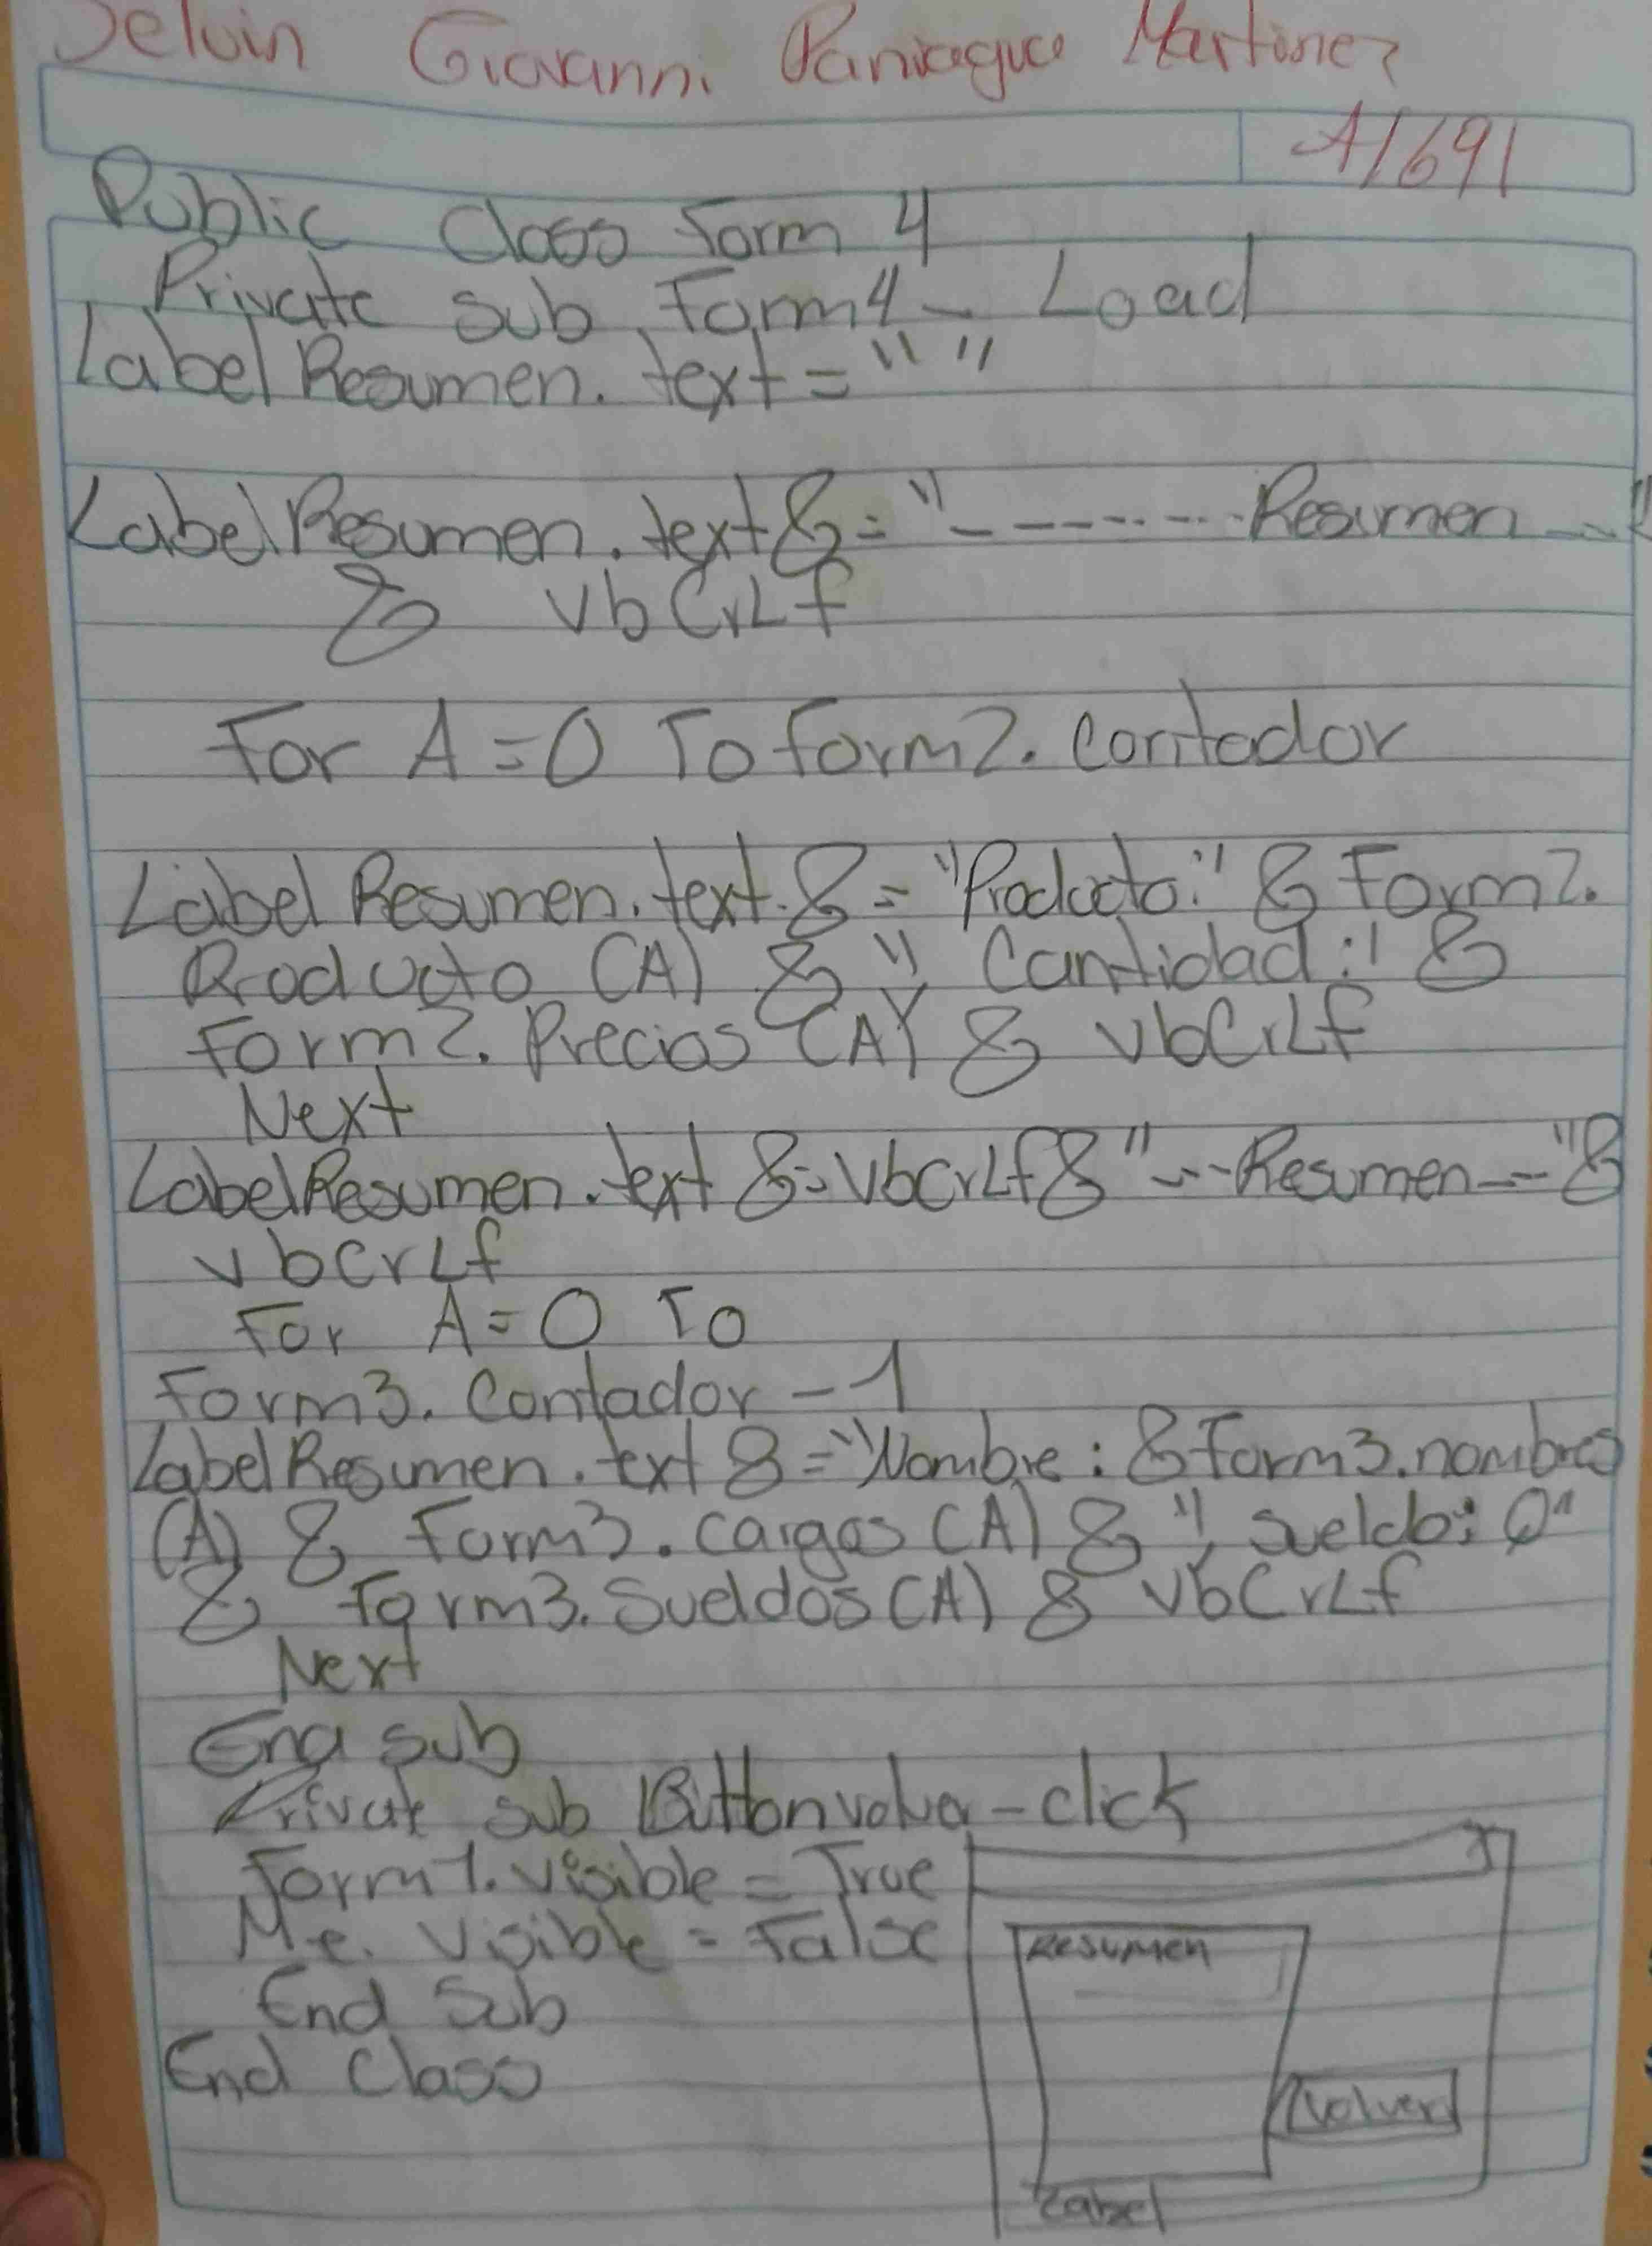 Selvin Giovanni Paniagua Martinez
A1691
Public Class Form 4
Private sub Form4 - Load
Label Resumen. text = " "
Label Resumen. text & = "- - - - - - - - Resumen - - "
& vbCrLf
For A = 0 To form2. contador
Label Resumen. text. & = "Producto:" & Form2.
Producto (A) & ", Cantidad:" &
Form2. Precios (A) & vbCrLf
Next
LabelResumen. text &= vbCrLf & "---Resumen---" &
vbCrLf
For A = 0 To
Form3. Contador - 1
LabelResumen. text & = "Nombre : & Form3. nombres
(A) & Form3. cargos (A) & ", Sueldo: Q"
& Form3. Sueldos (A) & vbCrLf
Next
End sub
Private sub Button volver - click
Form1. visible = True
Me. visible = False
End Sub
End Class
X
Resumen
Volver
Label